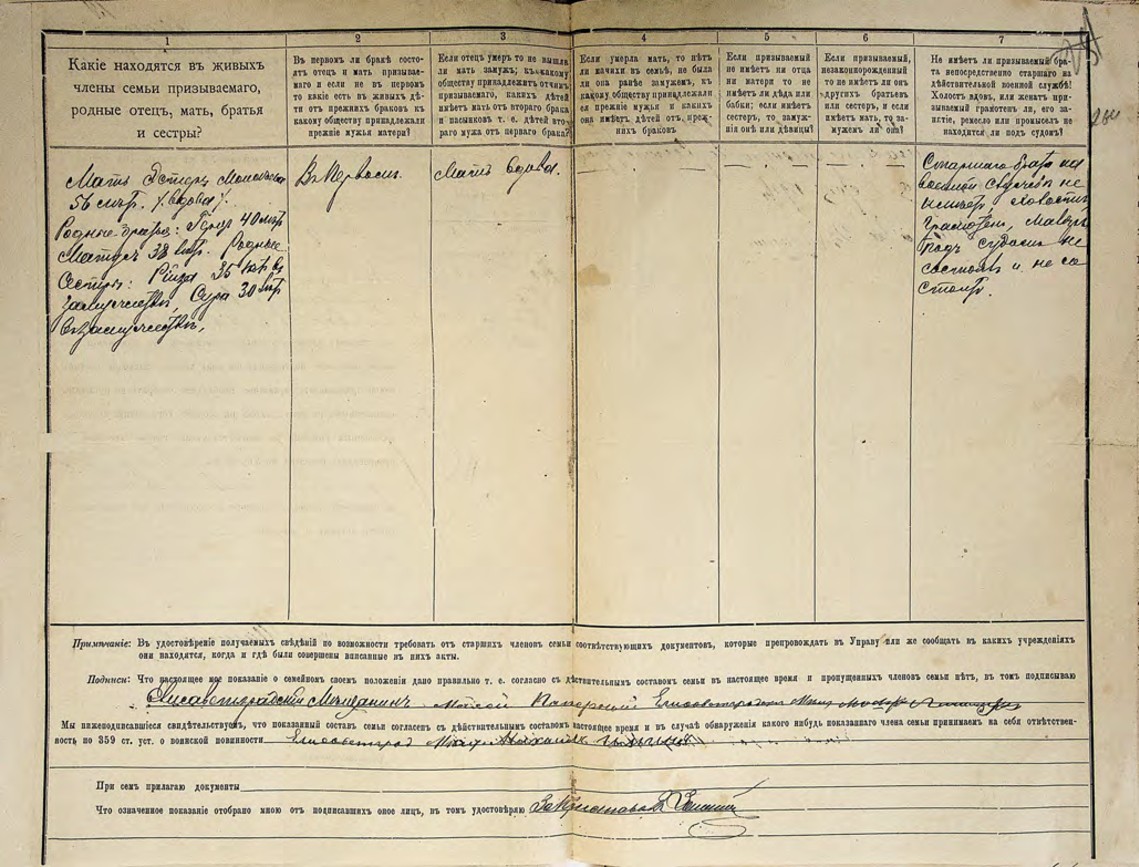 1
Какіе находятся въ живыхъ
члены семьи призываемаго,
родные отецъ, мать, братья
и сестры?
2
Въ первомъ ли бракѣ состо-
ятъ отецъ и мать призывае-
маго и если не въ первомъ
то какіе есть въ живыхъ дѣ-
ти отъ прежнихъ браковъ къ
какому обществу принадлежали
прежніе мужья матери?
3
Если отецъ умеръ то не вышла
ли мать замужъ; къ какому
обществу принадлежитъ отчимъ
призываемаго, какихъ дѣтей
имѣетъ мать отъ втораго брака
и пасынковъ т. е. дѣтей вто-
раго мужа отъ перваго брака?
4
Если умерла мать, то нѣтъ
ли мачихи въ семьѣ, не была
ли она ранѣе замужемъ, къ
какому обществу принадлежали
ея прежніе мужья и какихъ
она имѣетъ дѣтей отъ преж-
нихъ браковъ
5
Если призываемый
не имѣетъ ни отца
ни матери то не
имѣетъ ли дѣда или
бабки; если имѣетъ
сестеръ, то замуж-
нія онѣ или дѣвицы?
6
Если призываемый,
незаконорожденный
то не имѣетъ ли онъ
другихъ братьевъ
или сестеръ, и если
имѣетъ мать, то за-
мужемъ ли она?
7
Не имѣетъ ли призываемый бра-
та непосредственно старшаго на
дѣйствительной военной службѣ?
Холостъ, вдовъ, или женатъ при-
зываемый грамотенъ ли, его за-
нятіе, ремесло или промыселъ не
находится ли подъ судомъ?
264
Мать Эстеръ
56 лѣтъ. / вдова /.
Родные братья: 40 лѣтъ
38 лѣтъ. Родные
Сестры: 35 лѣтъ въ
замужествѣ, Сура 30 лѣтъ
въ замужествѣ,
Въ Первомъ.
Мать вдова.
Старшаго брата на
военной службѣ не
имѣетъ, холостъ
грамотенъ,
подъ судомъ не
состоялъ и не со
стоитъ.
Примѣчаніе: Въ удостовѣреніе получаемыхъ свѣдѣній по возможности требовать отъ старшихъ членовъ семьи соотвѣтствующихъ документовъ, которые препровождать въ Управу или же сообщать въ какихъ учрежденіяхъ
они находятся, когда и гдѣ были совершены вписанные въ нихъ акты.
Подписи: Что настоящее мое показаніе о семейномъ своемъ положеніи дано правильно т. е. согласно съ дѣйствительнымъ составомъ семьи въ настоящее время и пропущенныхъ членовъ семьи нѣтъ, въ томъ подписываю
Елисаветградскій Мѣщанинъ
Мы нижеподписавшіеся свидѣтельствуемъ, что показанный составъ семьи согласенъ съ дѣйствительнымъ составомъ настоящее время и въ случаѣ обнаруженія какого нибудь показаннаго члена семьи принимаемъ на себя отвѣтствен-
ность по 359 ст. уст. о воинской повинности
При семъ прилагаю документы
Что означенное показаніе отобрано мною отъ подписавшихъ оное лицъ, въ томъ удостовѣряю